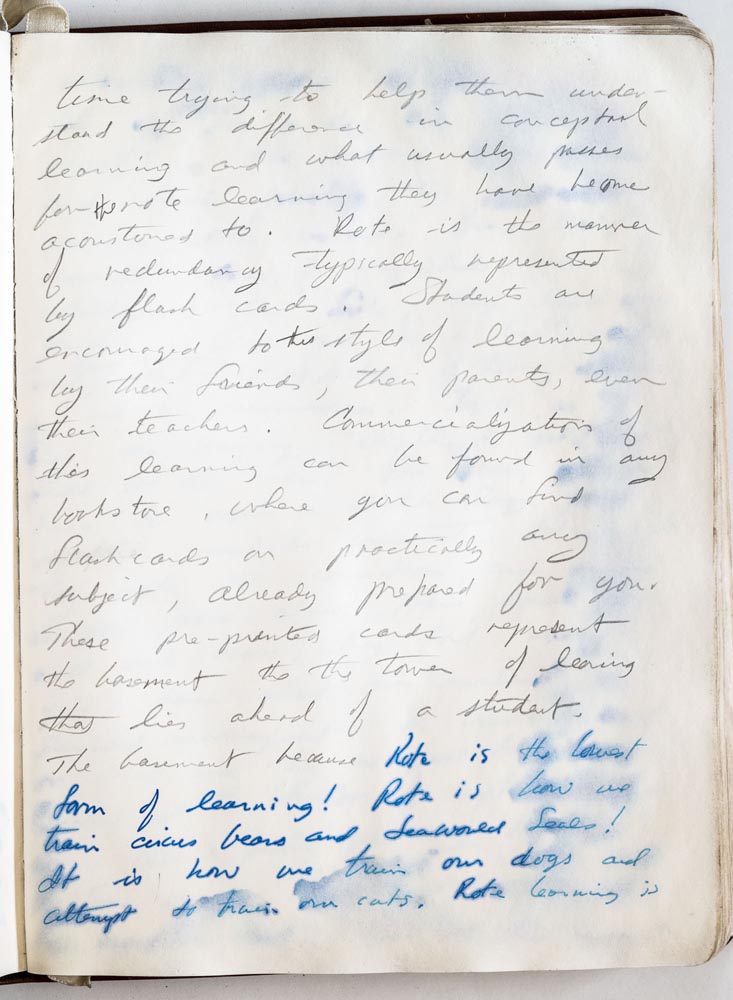 time trying to help them under-
stand the difference in conceptual
learning and what usually passes
for the rote learning they have become
acoustoned to. Rote is the manner
of redundancy typically represented
by flash cards. Students are
encouraged to this style of learning
by their friends, their parents, even
their teachers. Commercialization of
this learning can be found in any
bookstore, where you can find
flashcards on practically any
subject, already prepared for you.
These pre-printed cards represent
the basement the the tower of learing
that lies ahead of a student.
The basement because Rote is the lowest
form of learning! Rote is how we
train circus bears and Seaworld Seals!
It is how we train our dogs and
attempt to train our cats. Rote learning is